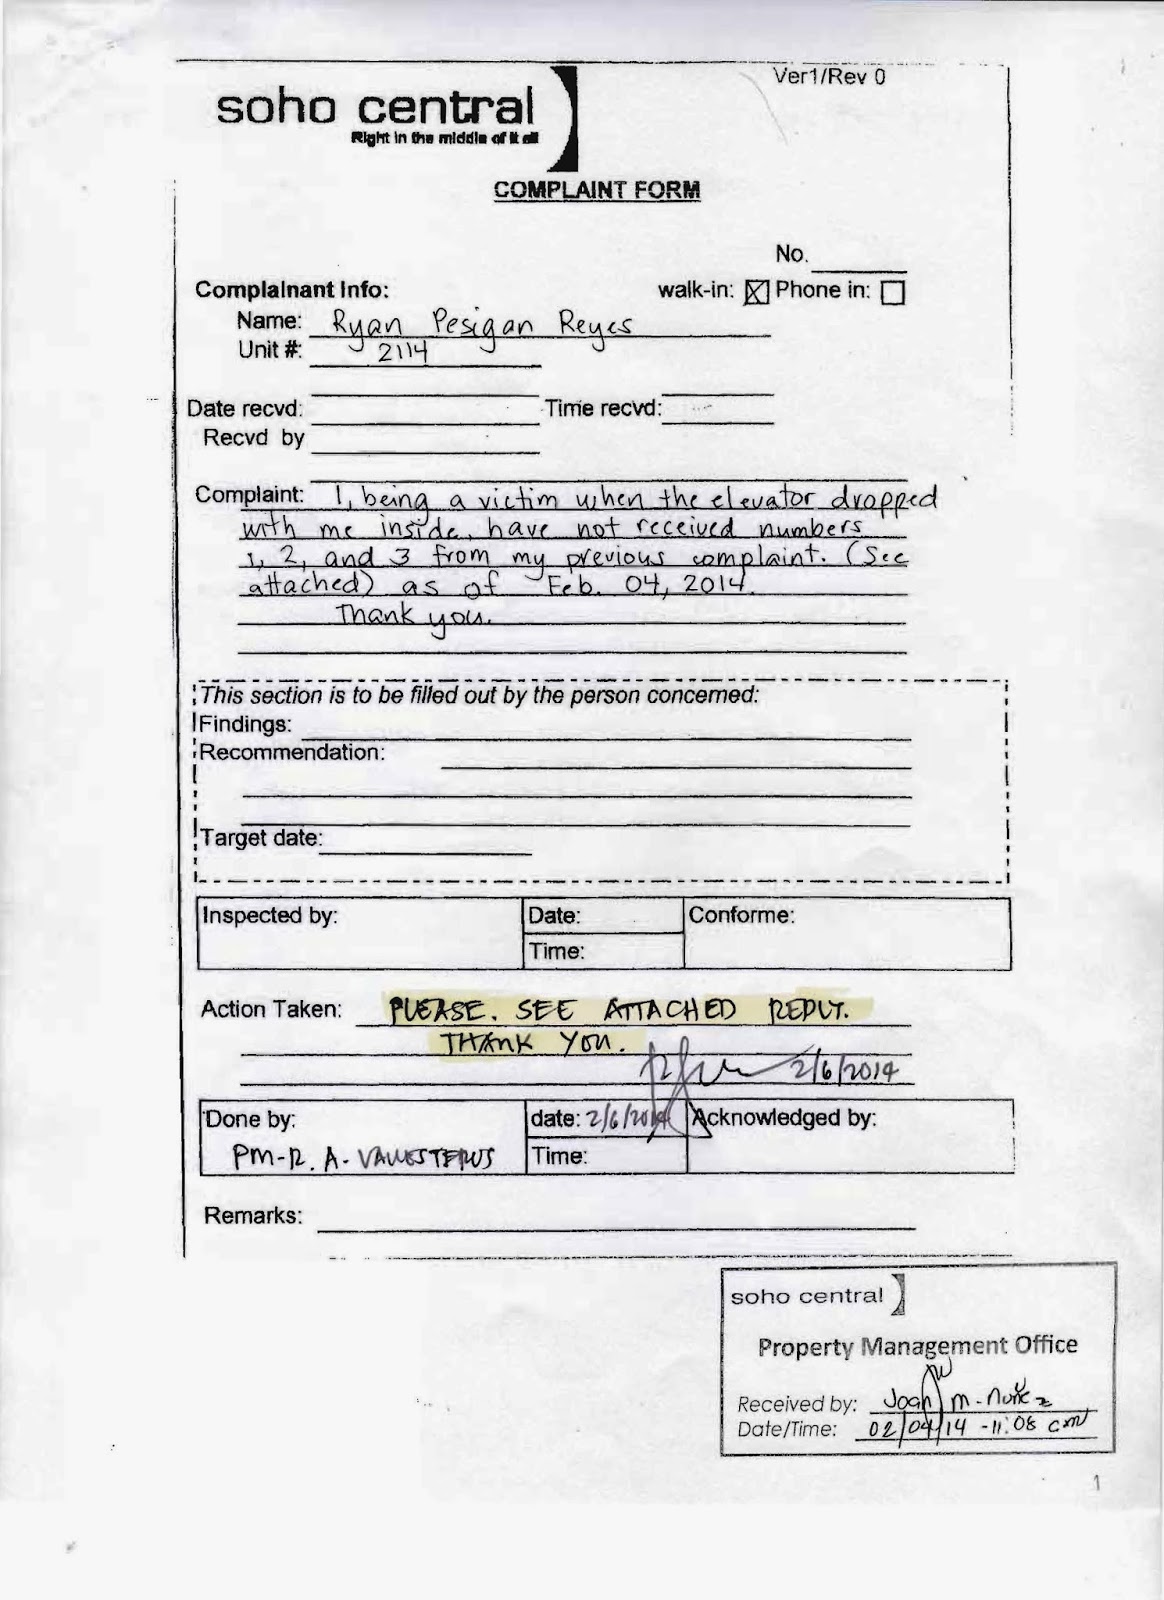 Ver1/Rev 0
soho central
Right in the middle of it all
COMPLAINT FORM
No.
Complainant Info: walk-in: ☒ Phone in: ☐
Name: Ryan Pesigan Reyes
Unit #: 2114
Date recvd: Time recvd:
Recvd by
Complaint: I, being a victim when the elevator dropped
with me inside, have not received numbers
1, 2, and 3 from my previous complaint. (See
attached) as of Feb. 04, 2014.
Thank you.
This section is to be filled out by the person concerned:
Findings:
Recommendation:
Target date:
Inspected by: Date: Conforme:
Time:
Action Taken: PLEASE. SEE ATTACHED REPLY.
THANK YOU.
2/6/2014
Done by: date: 2/6/2014 Acknowledged by:
PM-R. A. Time:
Remarks:
soho central
Property Management Office
Received by: Joan M. Nuñez
Date/Time: 02/04/14 - 11:08 am
1